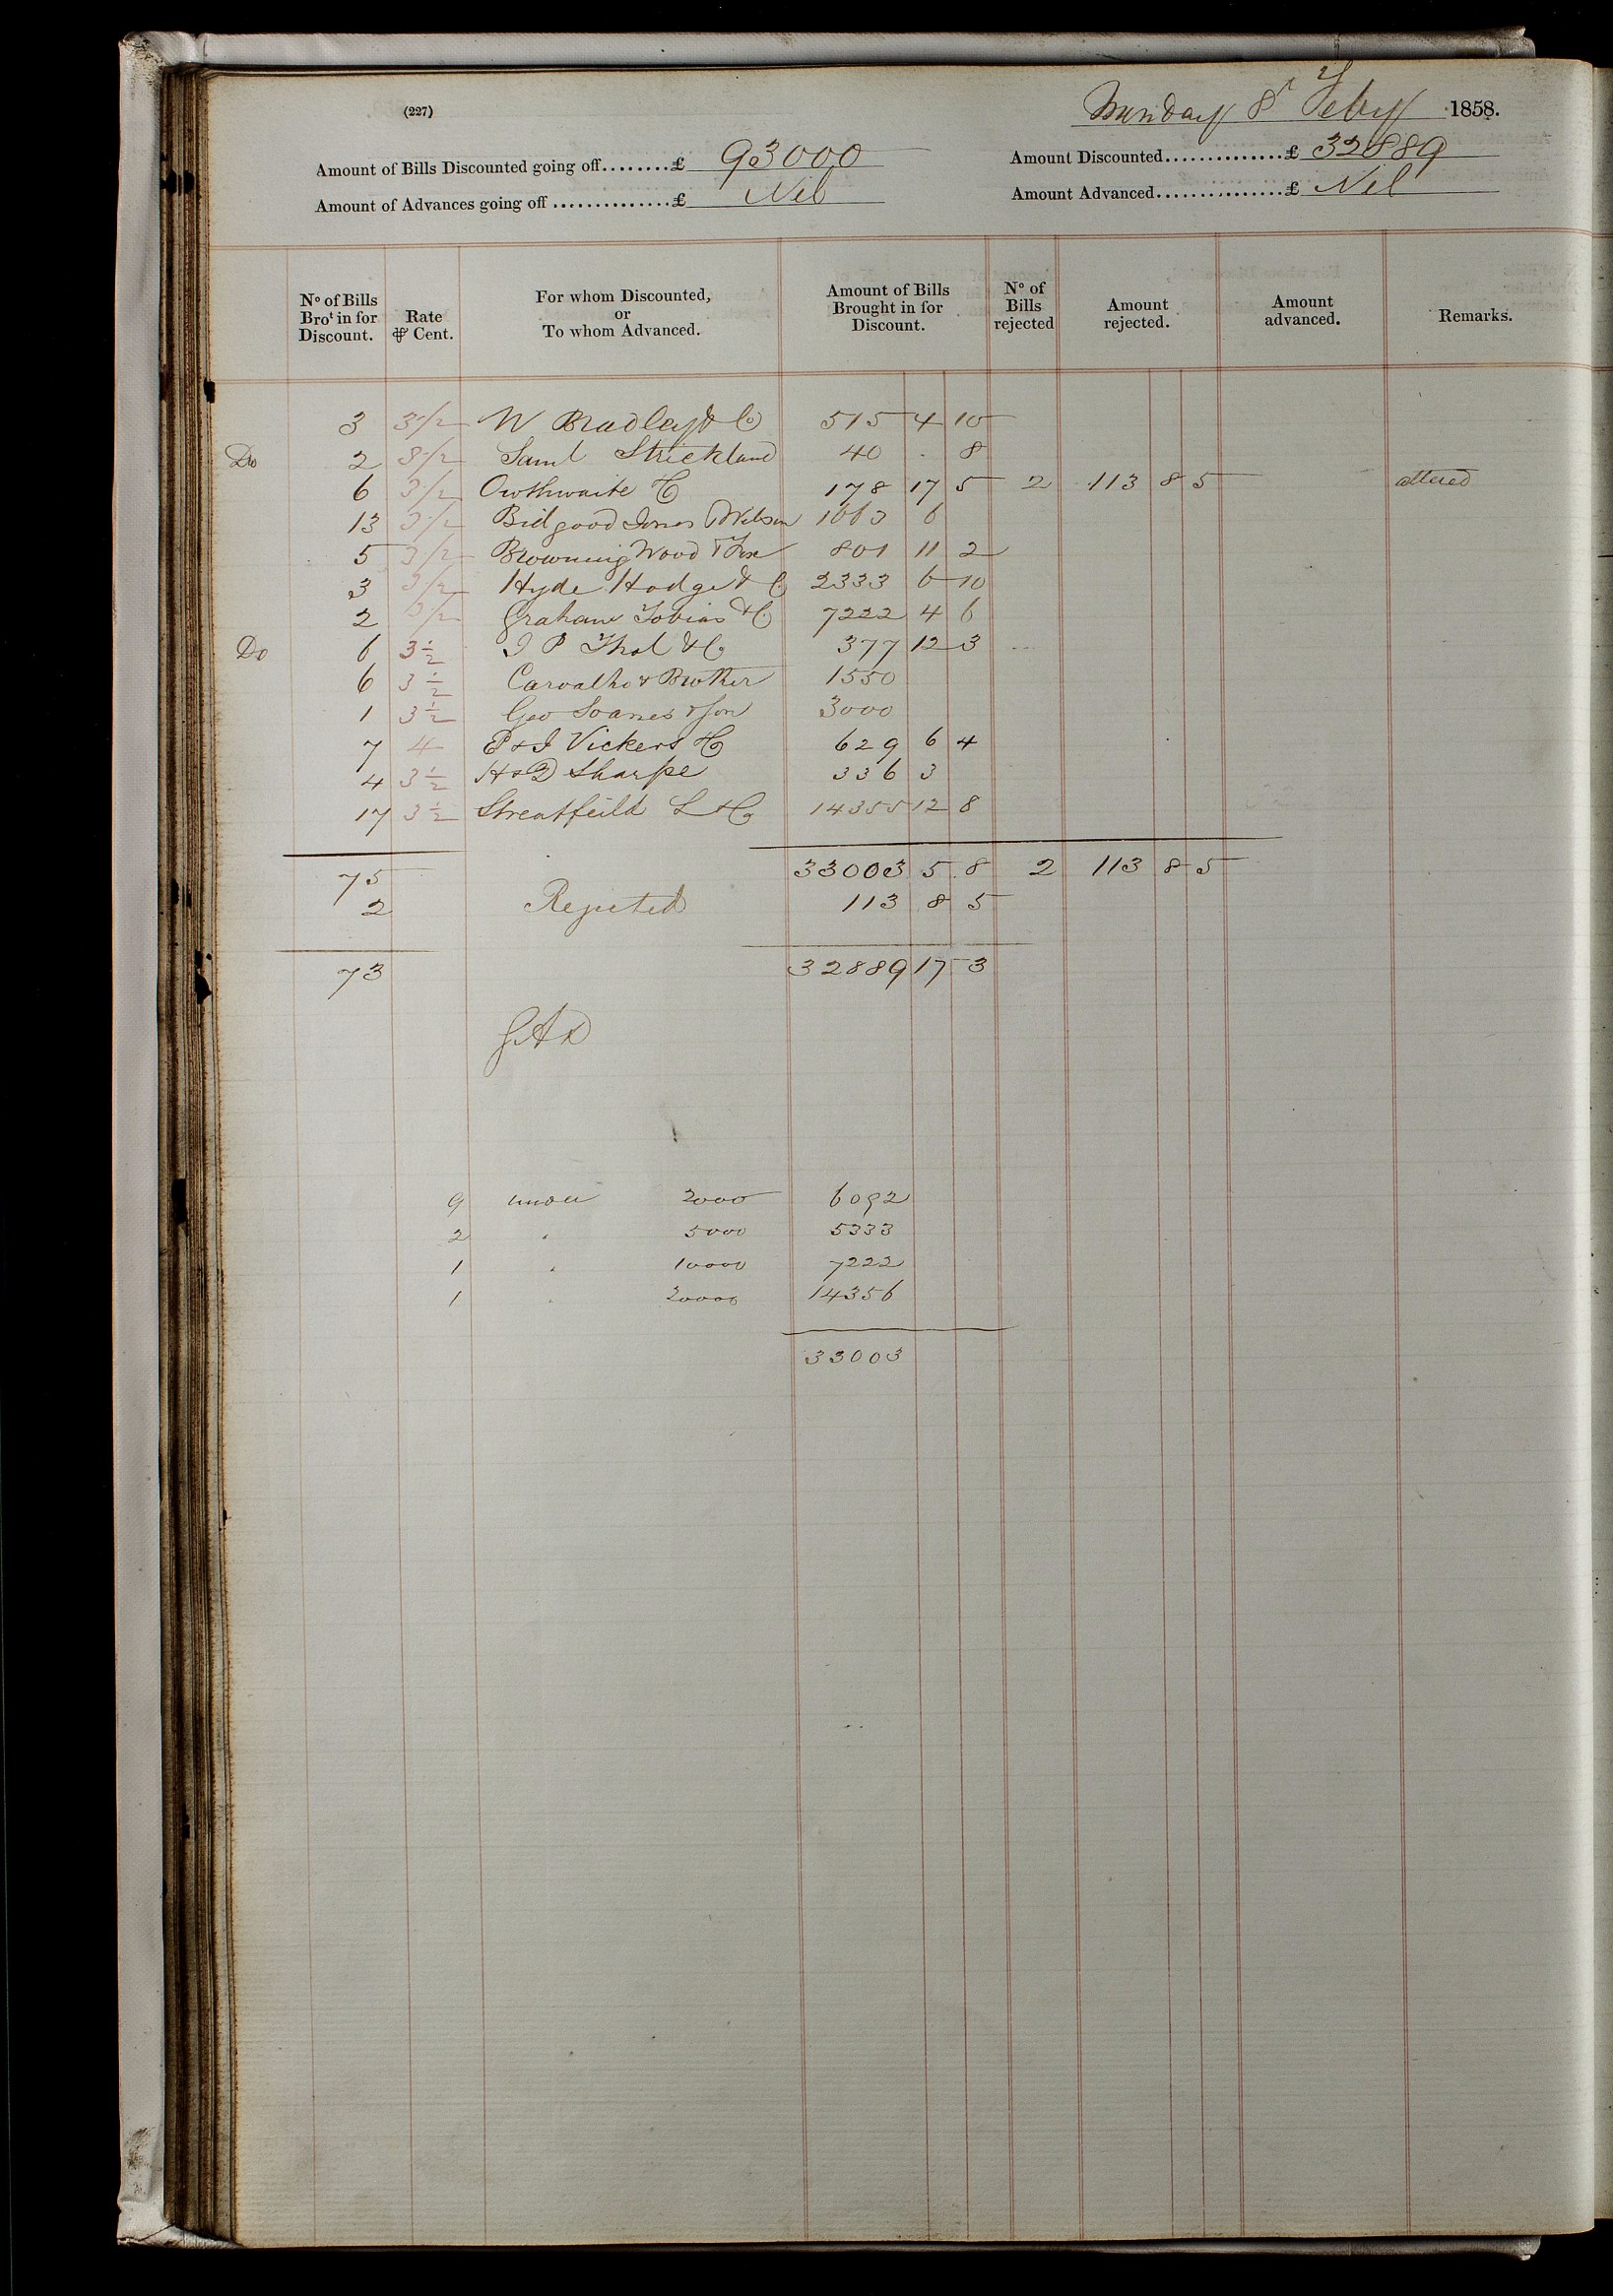 (227)
Monday 8th Feby 1858.
Amount of Bills Discounted going off........£ 93000
Amount Discounted..............£ 32889
Amount of Advances going off ..............£ Nil
Amount Advanced...............£ Nil
No of Bills Brot in for Discount.
Rate ⅌ Cent.
For whom Discounted, or To whom Advanced.
Amount of Bills Brought in for Discount.
No of Bills rejected
Amount rejected.
Amount advanced.
Remarks.
3 3 1/2 W Bradley & Co 515 4 10
Do 2 3 1/2 Saml Strickland 40 . 8
6 3 1/2 Owthwaite & Co 178 17 5 2 113 8 5 altered
13 3 1/2 Bidgood Jones & Wilson 1663 6
5 3 1/2 Browning Wood & Fox 801 11 2
3 3 1/2 Hyde Hodge & Co 2333 6 10
2 3 1/2 Graham Tobias & Co 7222 4 6
Do 6 3 1/2 J P Thol & Co 377 12 3
6 3 1/2 Carvalho & Brother 1550
1 3 1/2 Geo Soanes & Son 3000
7 4 P & J Vickers & Co 629 6 4
4 3 1/2 H & D Sharpe 336 3
17 3 1/2 Streatfeild L & Co 14355 12 8
75 33003 5 8 2 113 8 5
2 Rejected 113 8 5
73 32889 17 3
9 under 2000 6092
2 " 5000 5333
1 " 10000 7222
1 " 20000 14356
33003